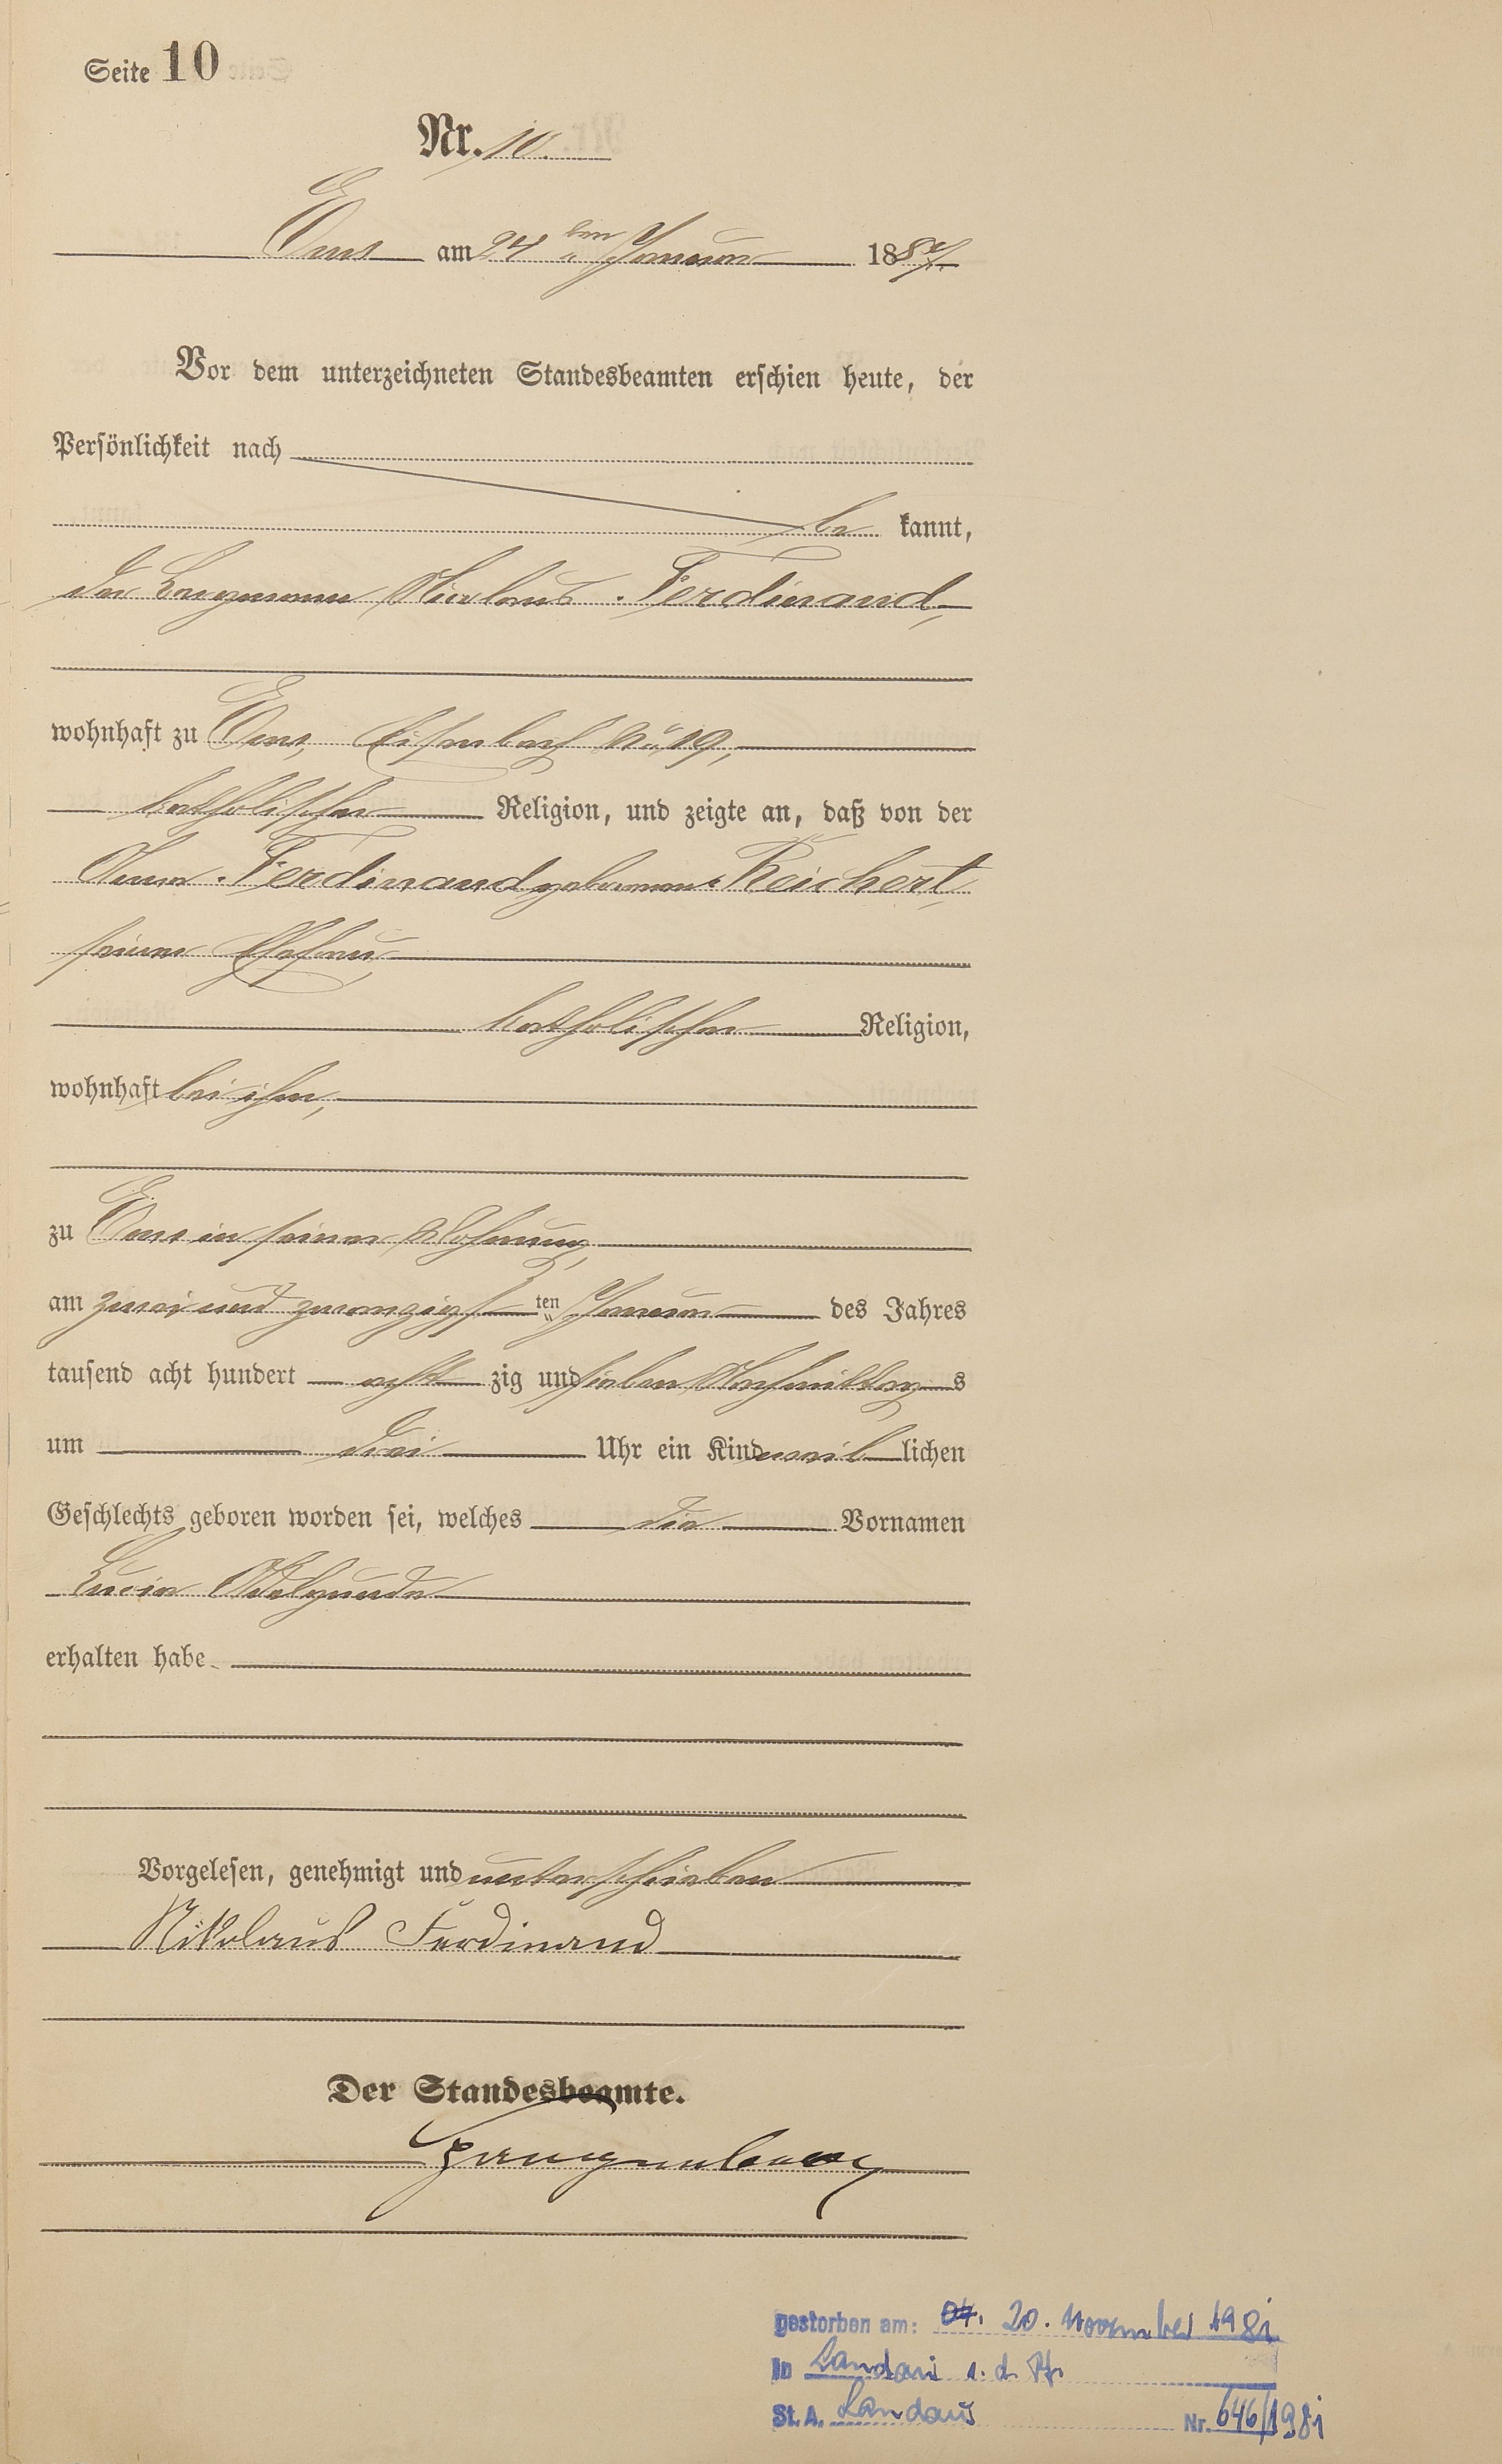 Seite 10
Nr. 10.
Ems am 24ten Januar 1887.
Vor dem unterzeichneten Standesbeamten erschien heute, der
Persönlichkeit nach
be kannt,
der Bergmann Nicolaus Ferdinand,
wohnhaft zu Ems, Eisenbach No 19,
katholischer Religion, und zeigte an, daß von der
Anna Ferdinand geborenen Reichert,
seiner Ehefrau,
katholischer Religion,
wohnhaft bei ihm,
zu Ems in seiner Wohnung,
am zwei und zwanzigsten Januar des Jahres
tausend acht hundert acht zig und sieben Nachmittags
um drei Uhr ein Kind weiblichen
Geschlechts geboren worden sei, welches die Vornamen
Lucia Adelgunde
erhalten habe
Vorgelesen, genehmigt und unterschrieben
Nikolaus Ferdinand
Der Standesbeamte.
gestorben am: 04. 20. November 1981
in Landau i. d. Pf.
St. A. Landau Nr. 646/1981